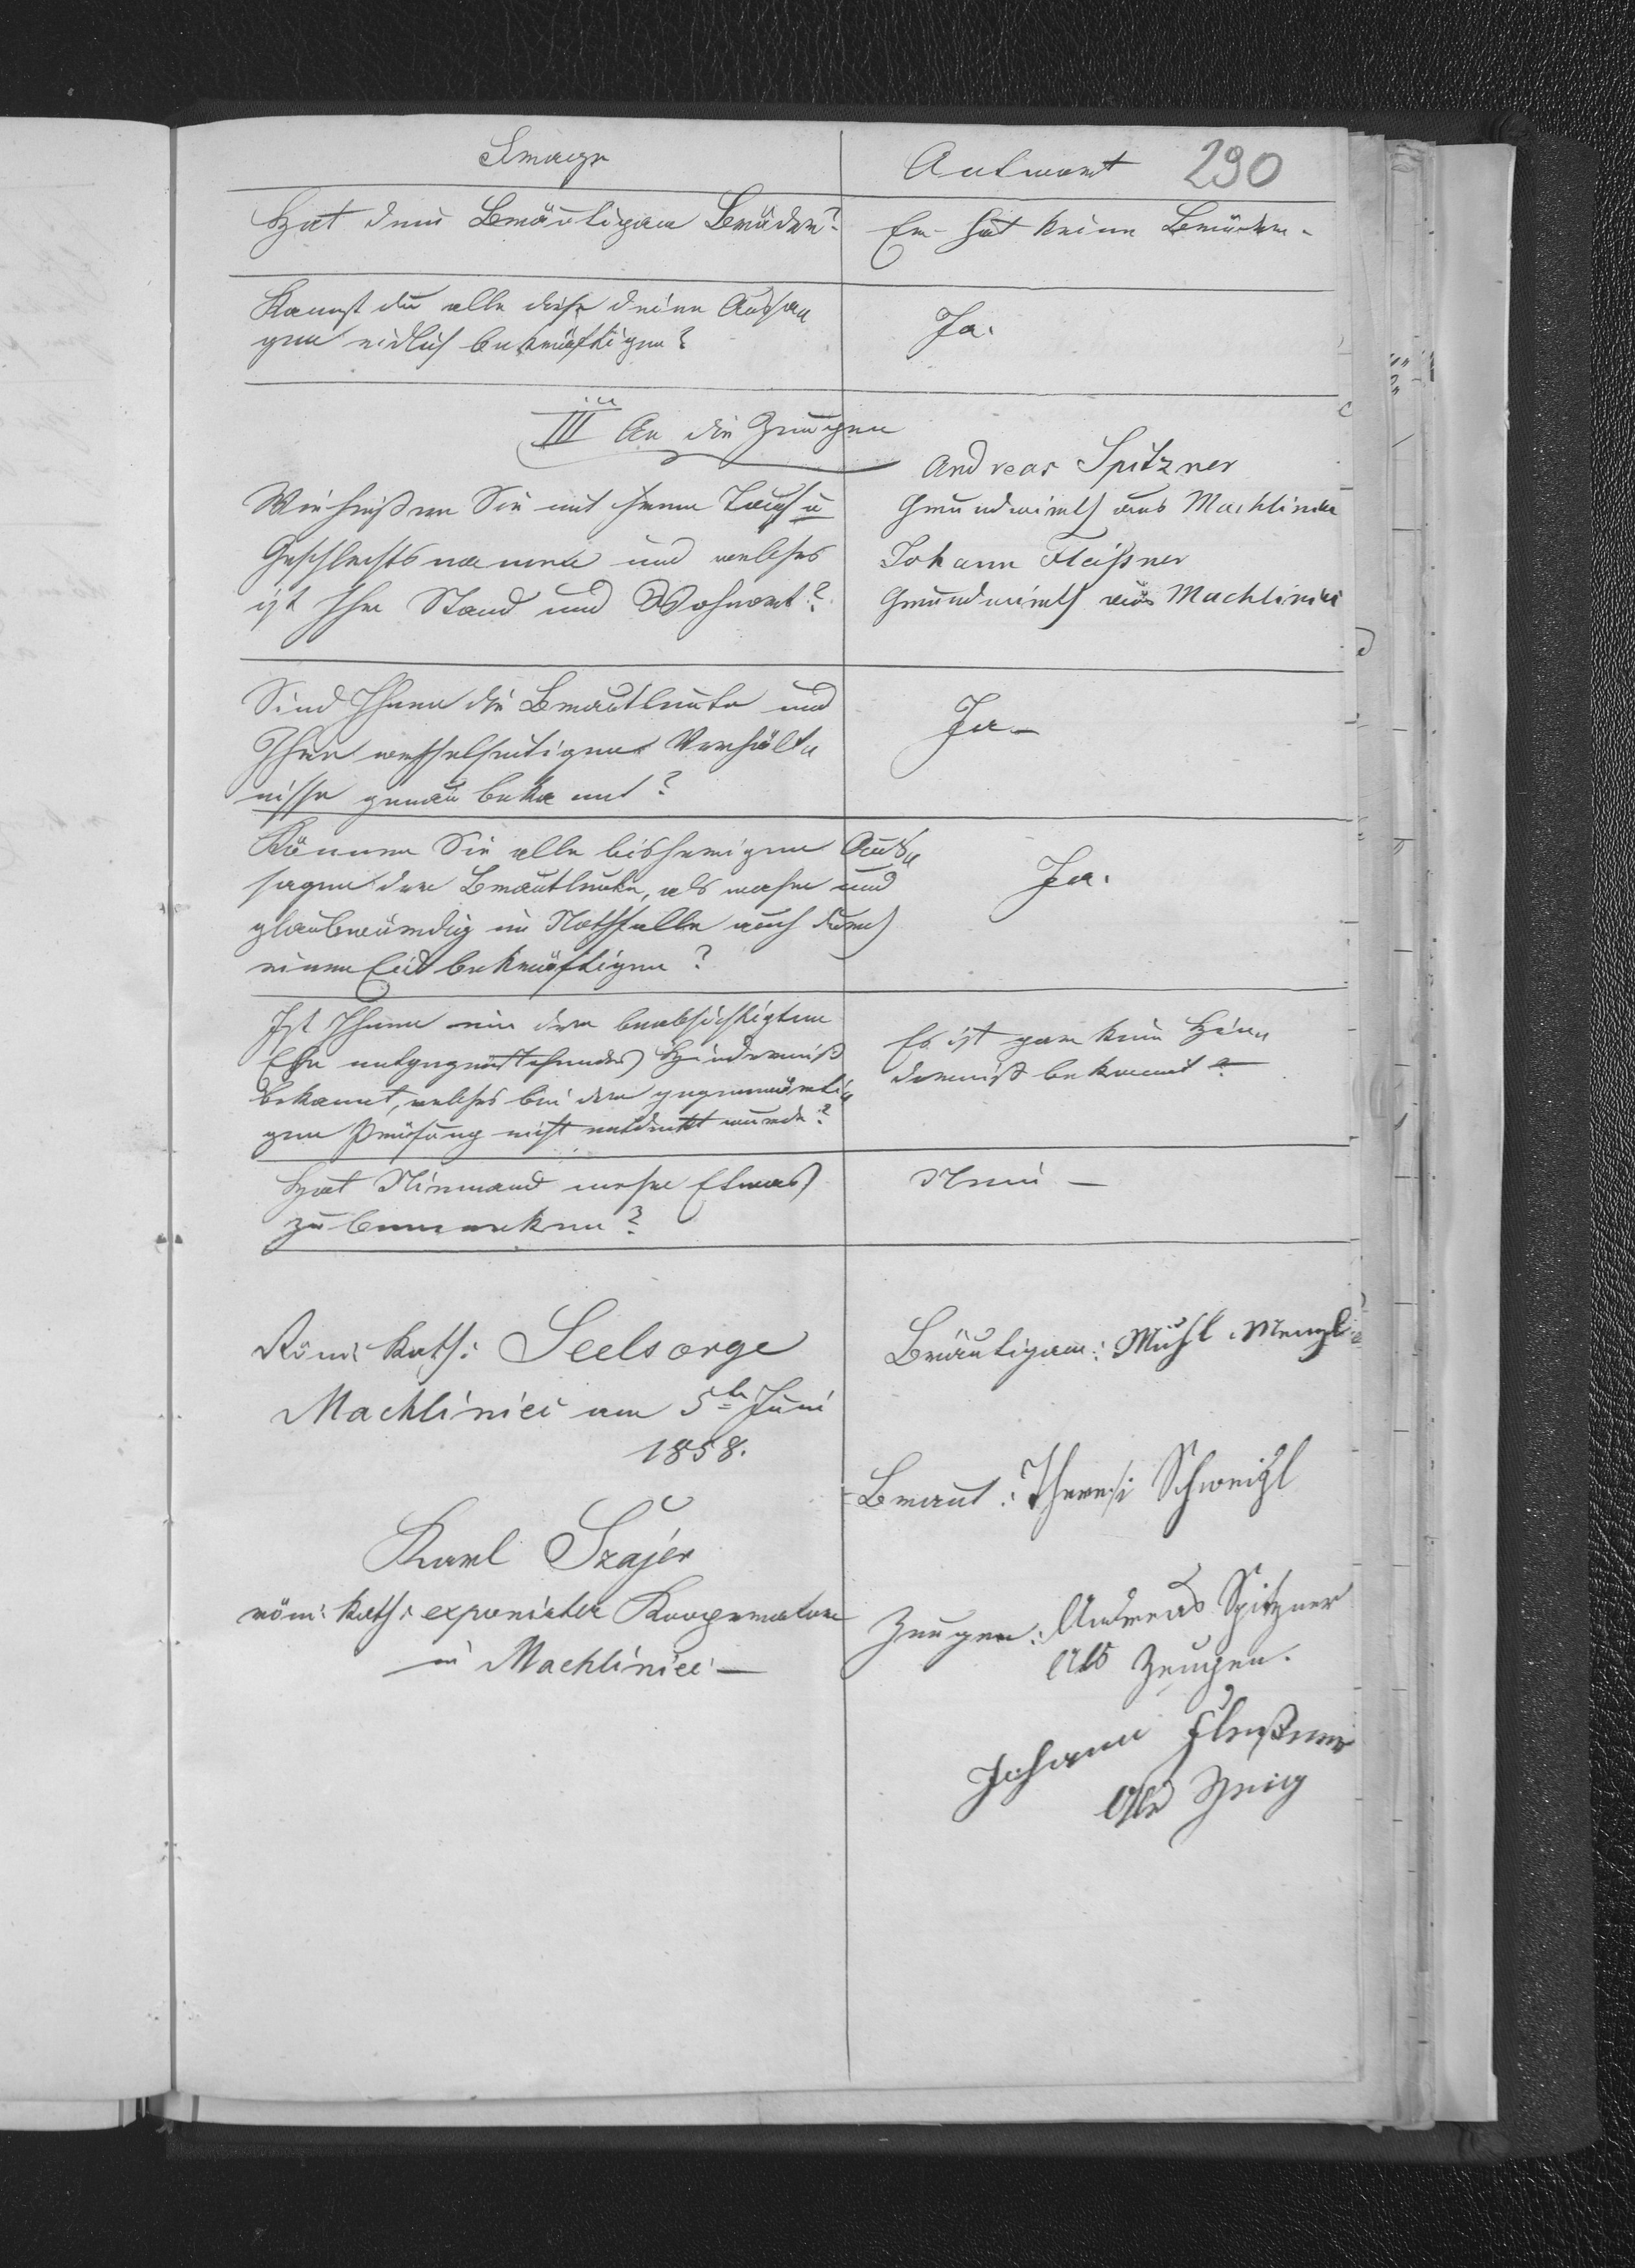 Frage
Antwort 290
Hat dein Bräutigam Brüder?
Er hat keine Brüder.
Kannst du alle diese deine Aussa
gen eidlich bekräftigen?
Ja.
III An die Zeugen
Wie heißen Sie mit Ihrem Tauf u
Geschlechtsnamen und welches
ist Ihr Stand und Wohnort?
Andreas Spitzner
Grundwirth aus Machliniec
Johann Fleissner
Grundwirth aus Machliniec
Sind Ihnen die Brautleute und
Ihre wechselseitigen Verhält
nisse genau bekannt?
Ja
Können Sie alle bisherigen Aus
sagen der Brautleute, als wahr und
glaubwürdig im Nothfalle auch durch
einen Eid bekräftigen?
Ja.
Ist Ihnen ein der beabsichtigten
Ehe entgegenstehendes Hinderniß
bekannt, welches bei der gegenwärti
gen Prüfung nicht entdeckt wurde?
Es ist gar kein Hin
derniß bekannt
Hat Niemand mehr Etwas
zu bemerken?
Nein —
Röm: Kath: Seelsorge
Machliniec am 5te Juni
1858.
Karl Szajer
röm: kath: exponirter Kooperator
in Machliniec —
Bräutigam:
Braut: Theresi Schweizl
Zeugen: Andreas Spitzner
Als Zeugen.
Johann Fleißner
Als Zeug